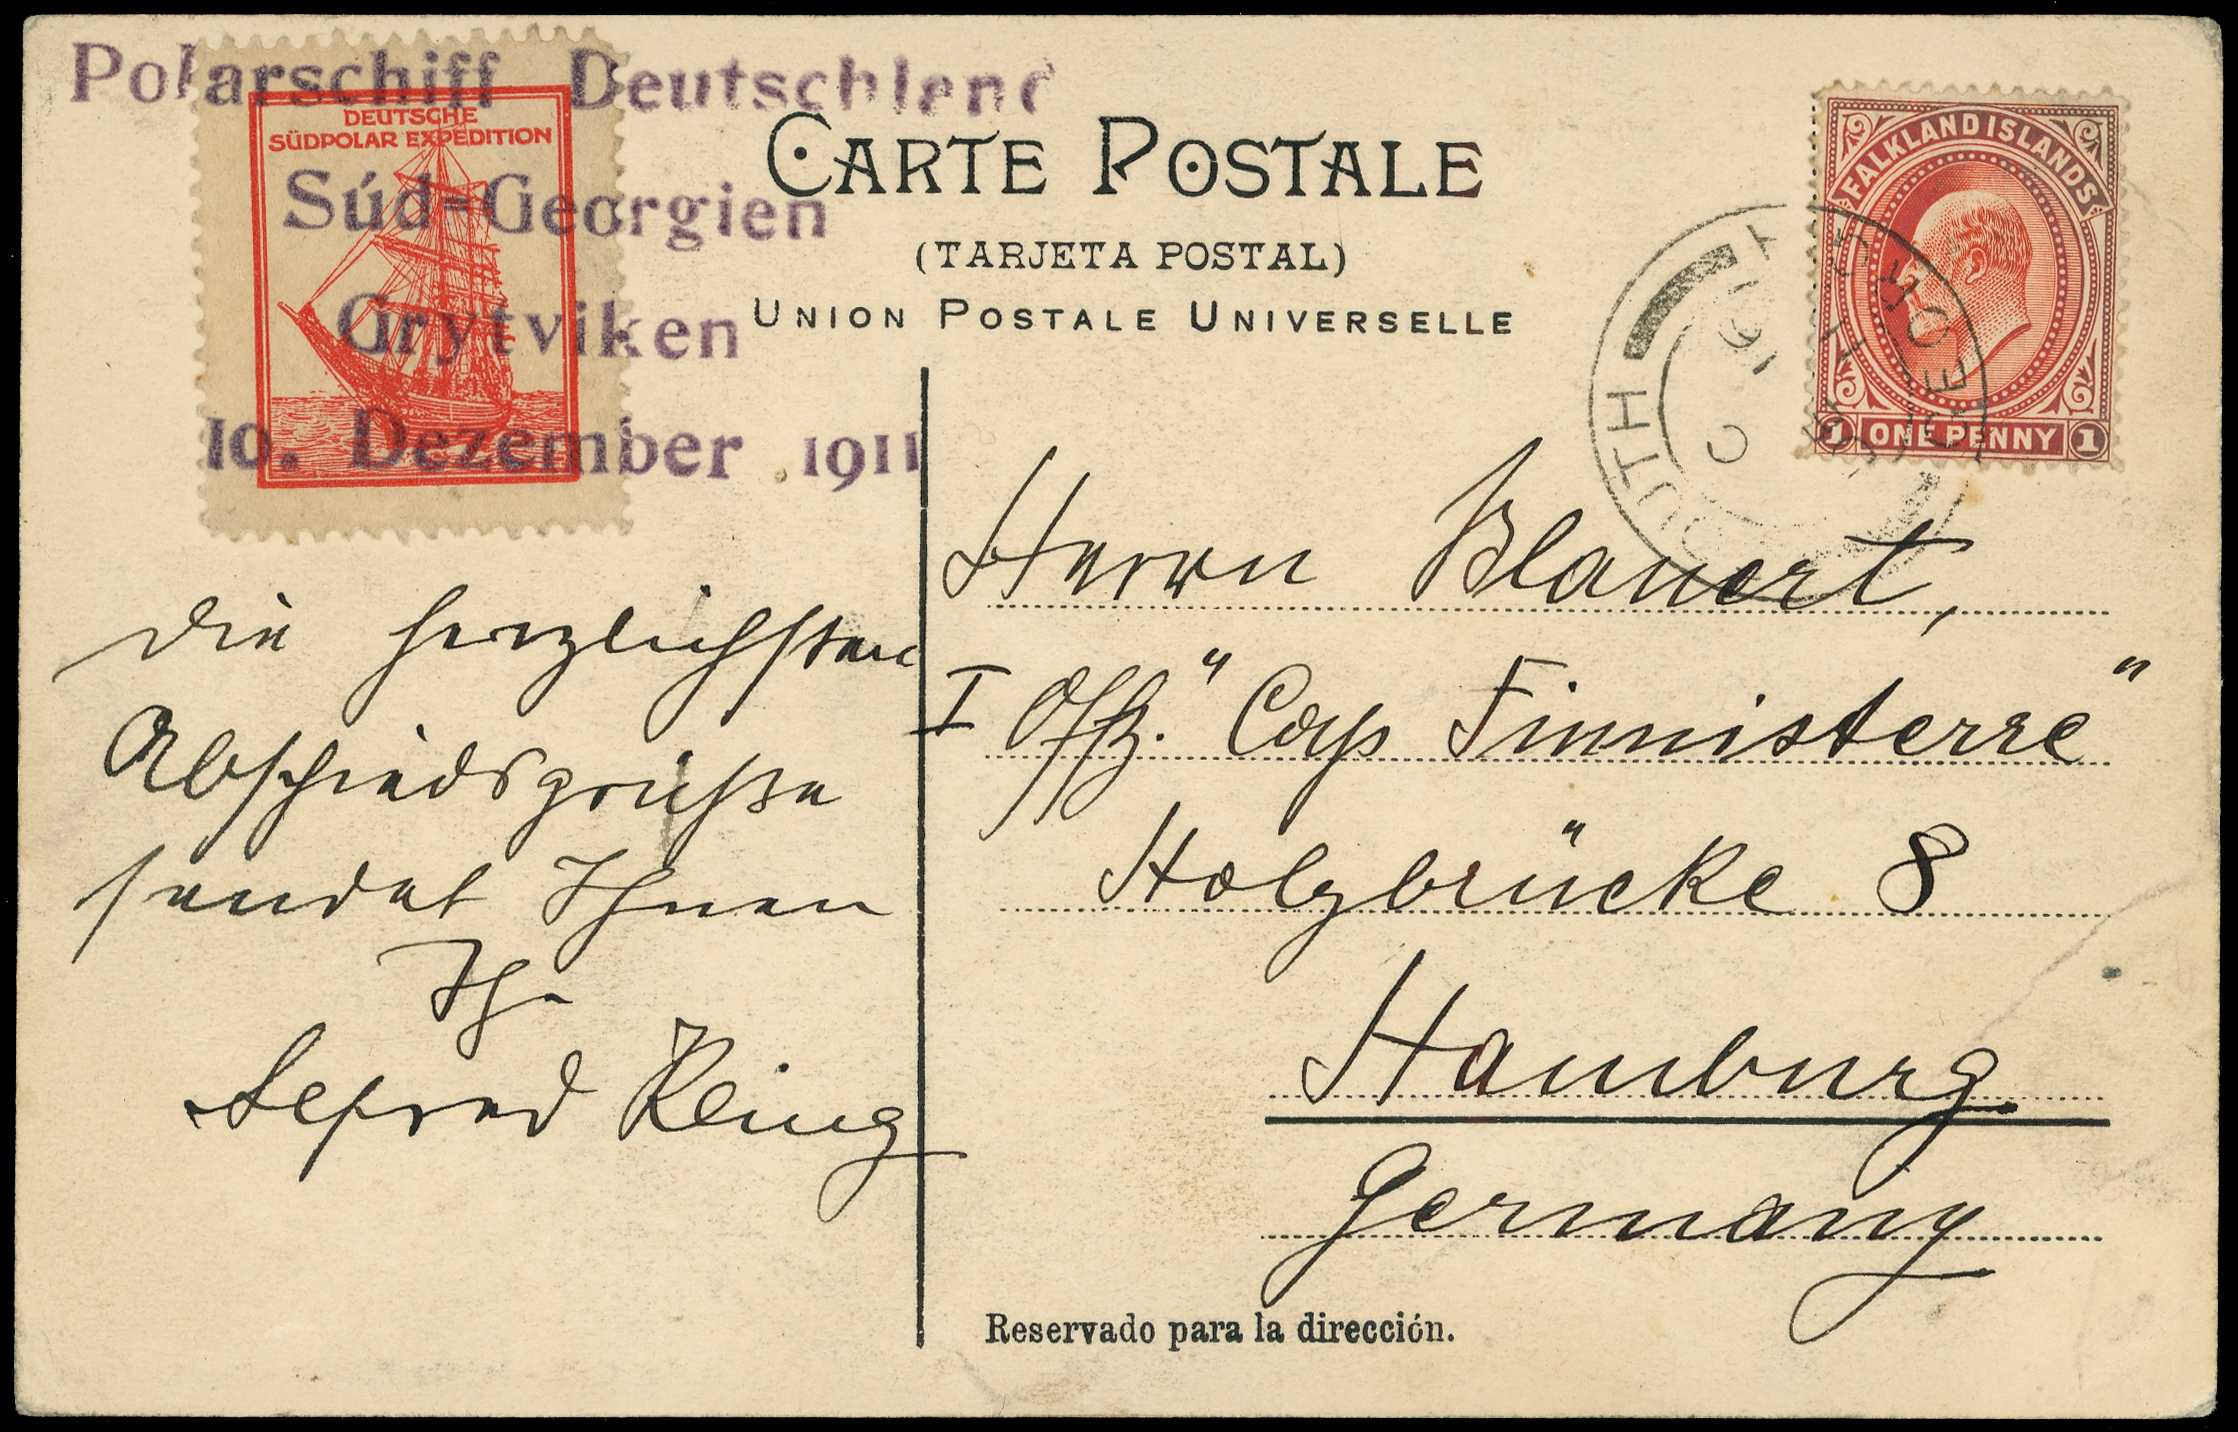 Polarschiff Deutschland
DEUTSCHE
SÜDPOLAR EXPEDITION
Süd-Georgien
Grytviken
10. Dezember 1911
CARTE POSTALE
(TARJETA POSTAL)
UNION POSTALE UNIVERSELLE
FALKLAND ISLANDS
1 ONE PENNY 1
SOUTH GEORGIA
Die herzlichsten
Abschiedsgrüße
sendet Ihnen
Ihr
Alfred Kling
Herrn Blauert,
I Offz. "Cap Finnisterre"
Holzbrücke 8
Hamburg
Germany
Reservado para la dirección.